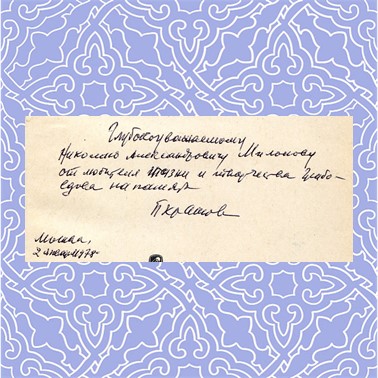 Глубокоуважаемому
Николаю Александровичу Милонову
от любителя жизни и творчества Грибо-
едова на память
П Краснов
Москва,
2 января 1978